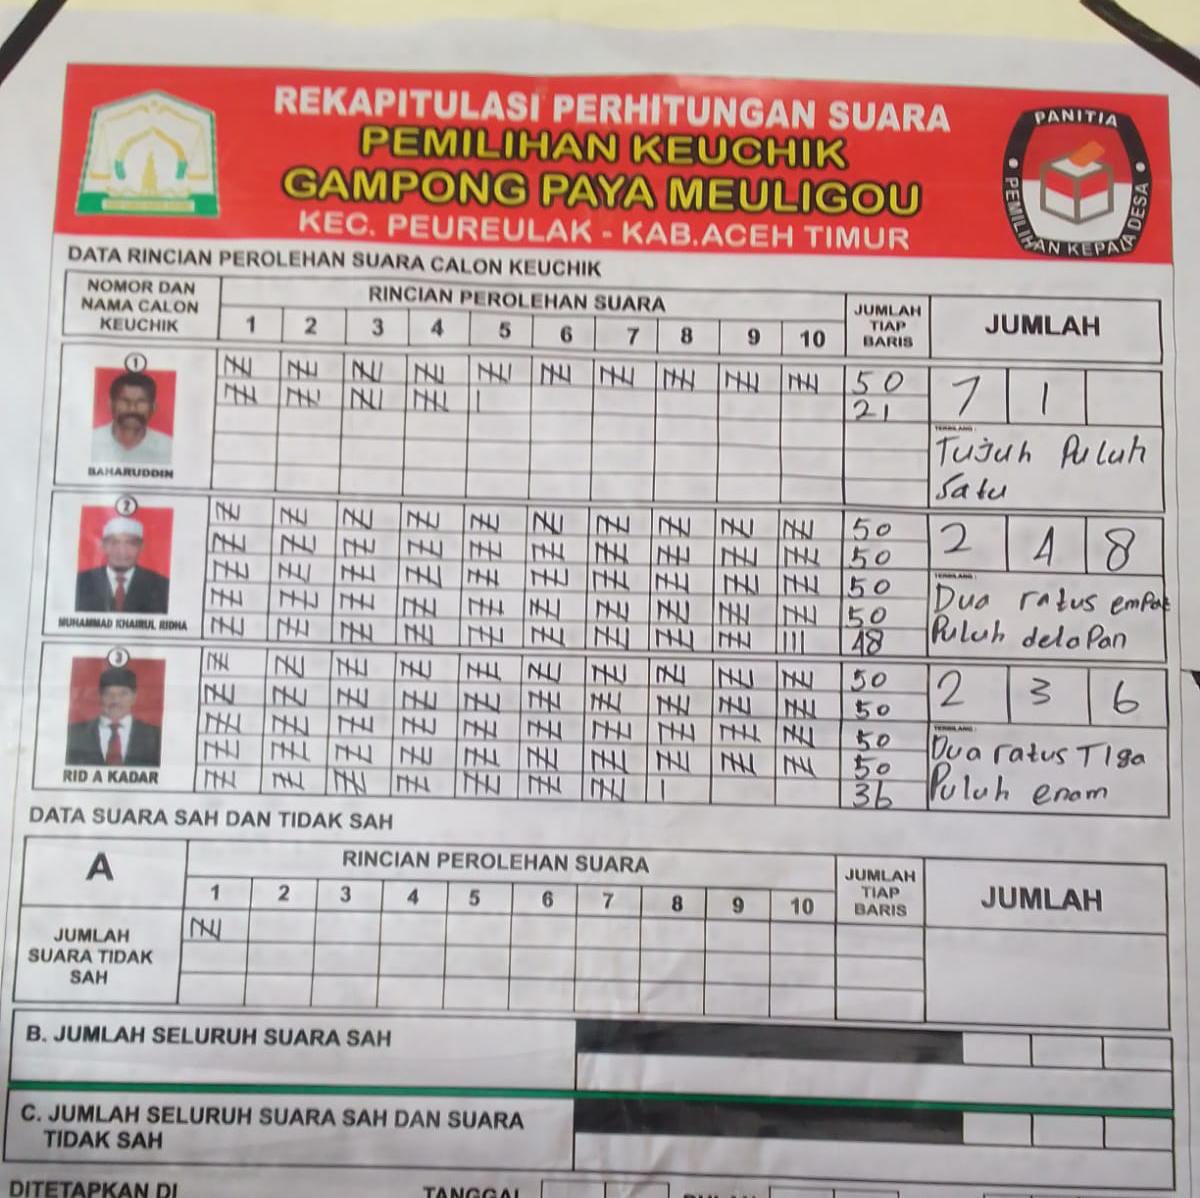 REKAPITULASI PERHITUNGAN SUARA
PEMILIHAN KEUCHIK
GAMPONG PAYA MEULIGOU
KEC. PEUREULAK - KAB.ACEH TIMUR
PANITIA
PEMILIHAN KEPALA DESA
DATA RINCIAN PEROLEHAN SUARA CALON KEUCHIK
NOMOR DAN NAMA CALON KEUCHIK
RINCIAN PEROLEHAN SUARA
1 2 3 4 5 6 7 8 9 10
JUMLAH TIAP BARIS
JUMLAH
1
BAHARUDDIN
50
21
7 1
TERBILANG :
Tujuh Puluh
Satu
2
MUHAMMAD KHAIRUL RIDHA
50
50
50
50
48
2 4 8
TERBILANG :
Dua ratus empat
Puluh delaPan
3
RID A KADAR
50
50
50
50
36
2 3 6
TERBILANG :
Dua ratus Tiga
Puluh enam
DATA SUARA SAH DAN TIDAK SAH
A
RINCIAN PEROLEHAN SUARA
1 2 3 4 5 6 7 8 9 10
JUMLAH TIAP BARIS
JUMLAH
JUMLAH
SUARA TIDAK
SAH
B. JUMLAH SELURUH SUARA SAH
C. JUMLAH SELURUH SUARA SAH DAN SUARA
TIDAK SAH
DITETAPKAN DI
TANGGAL
BULAN